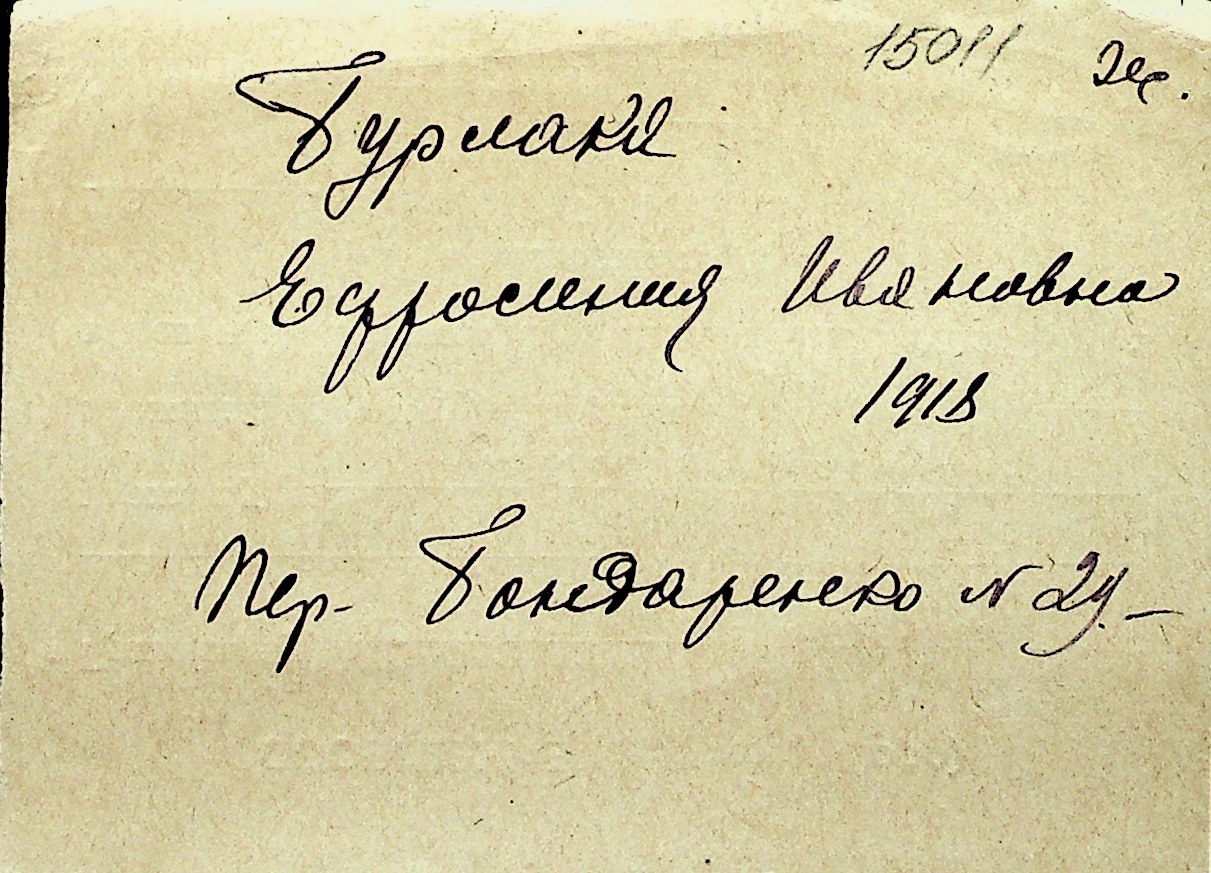 15011 Ж.
Бурлака
Ефросиния Ивановна
1918
Пер. Бондаренко N 29.